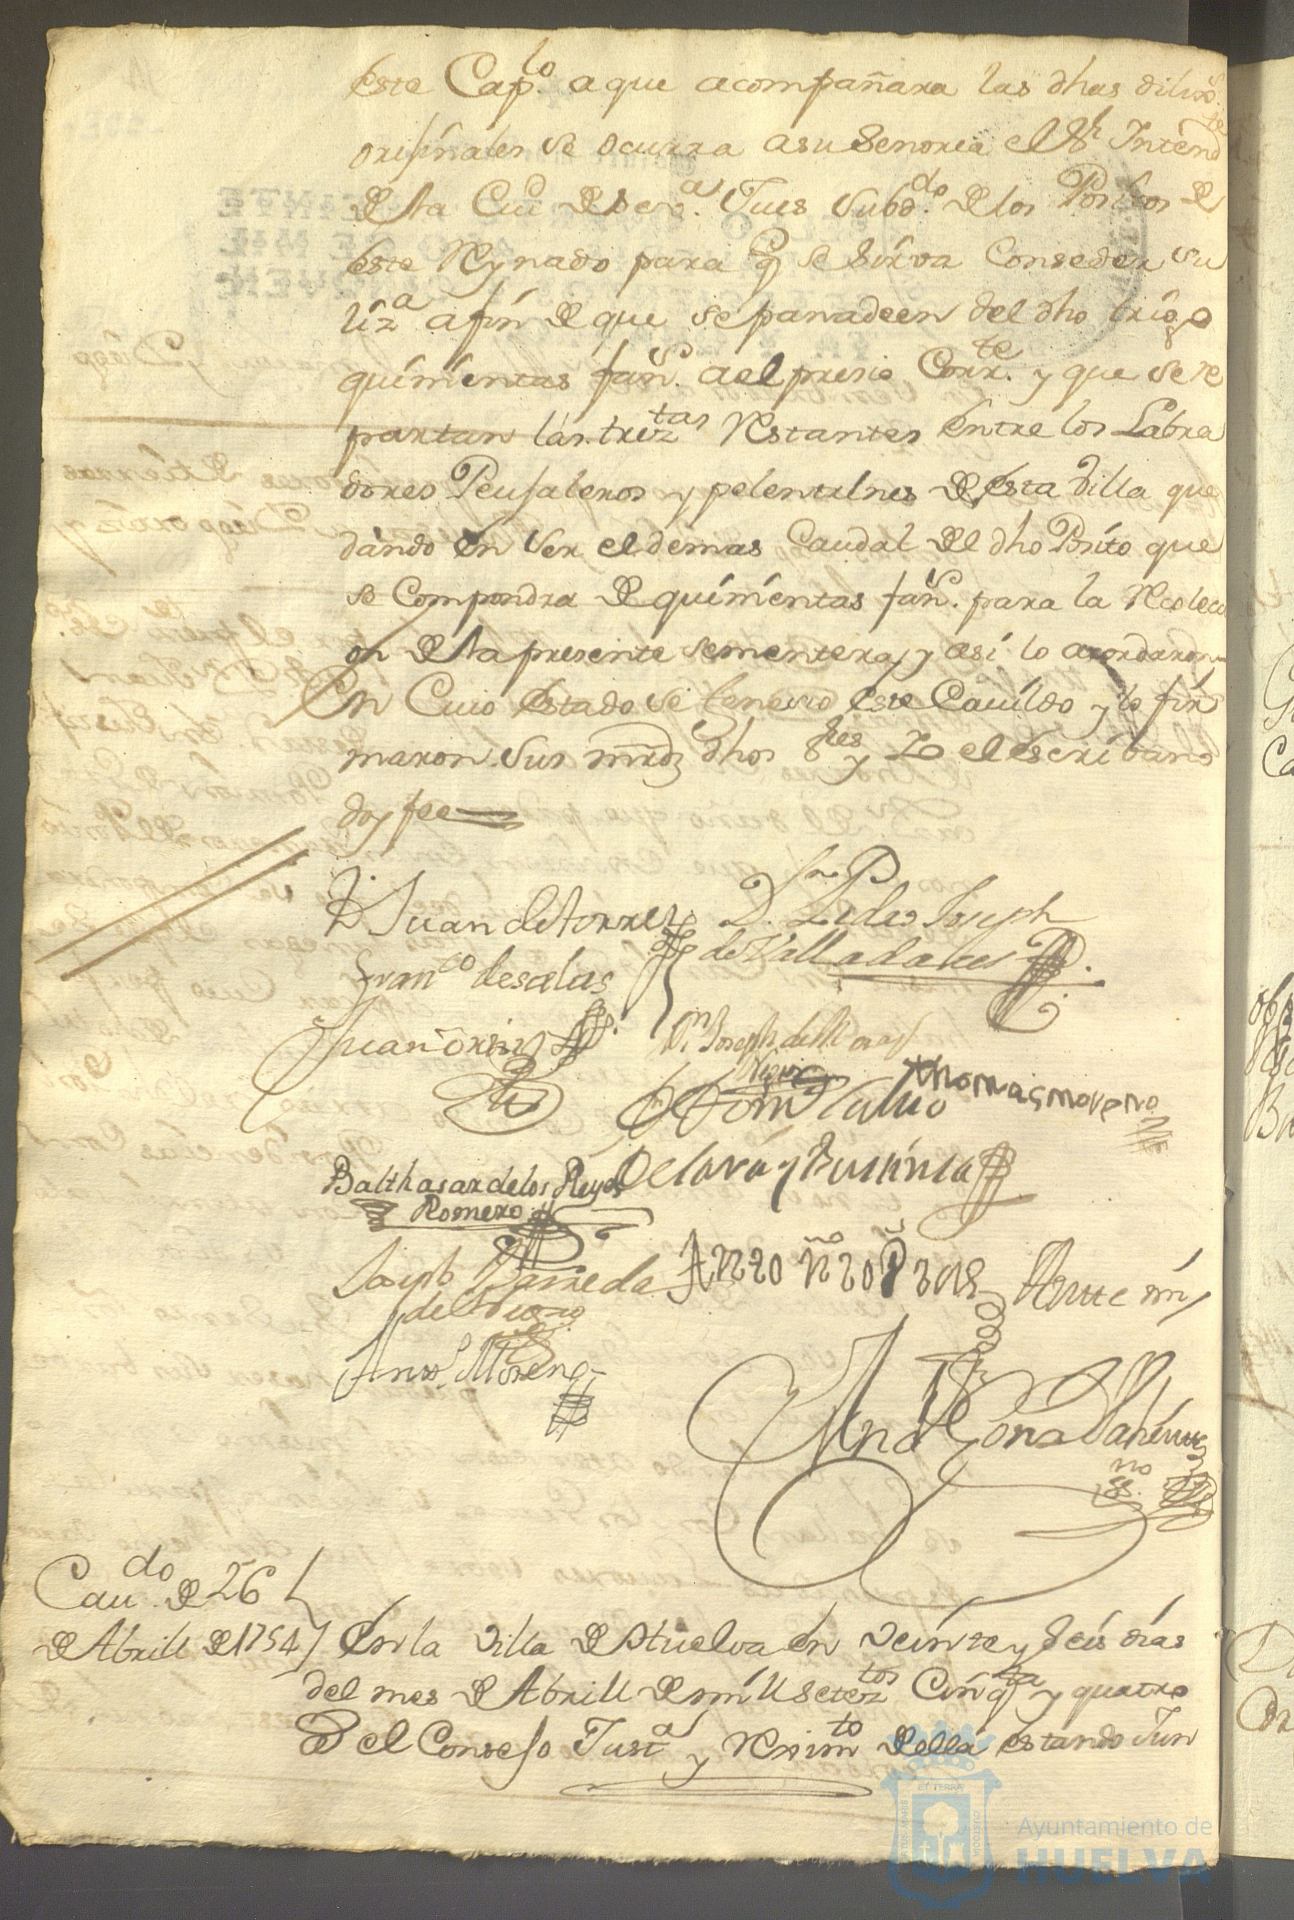 este Cap.lo a que acompañara las dhas dilixs.
orijinales se ocurra a su Senoria el Sr. Intend.te
de la Ciud de seva. Jues Subd.do de los Positos de
este Reynado para q se sirva Conseder su
liza a fin de que se panadeen del dho trigo
quinientas fans. a el presio Corr.te y que se re
partan las trez.tas Restantes entre los Labra
dores Peujaleros y pelentrines de esta Villa que
dando en ser el demas Caudal del dho Posito que
se Compondra de quinientas fans. para la Recolec
on de la presente sementera, y asi lo acordaron
En Cuio estado se fenesio este Cauildo y lo fir
maron sus mrds dhos Sres y Yo el escribano
doy fee
D. Juan de torres
D. Pedro Joseph
de Valladares
Franco. de salas
Juan Ortiz
Dn. Joseph del
thomas moreno
Balthasar de los Reyes
Romero
Joseph Barreda
Ante mi
Anto. Moreno
Cau.do de 26
de Abrill de 1754
En la Villa de Huelva en Veinte y Seis dias
del mes de Abrill de mill setez.tos Cinq.ta y quatro
El Consejo Just.a y Reximto della estando Jun
ET TERRAE
Ayuntamiento de
HUELVA